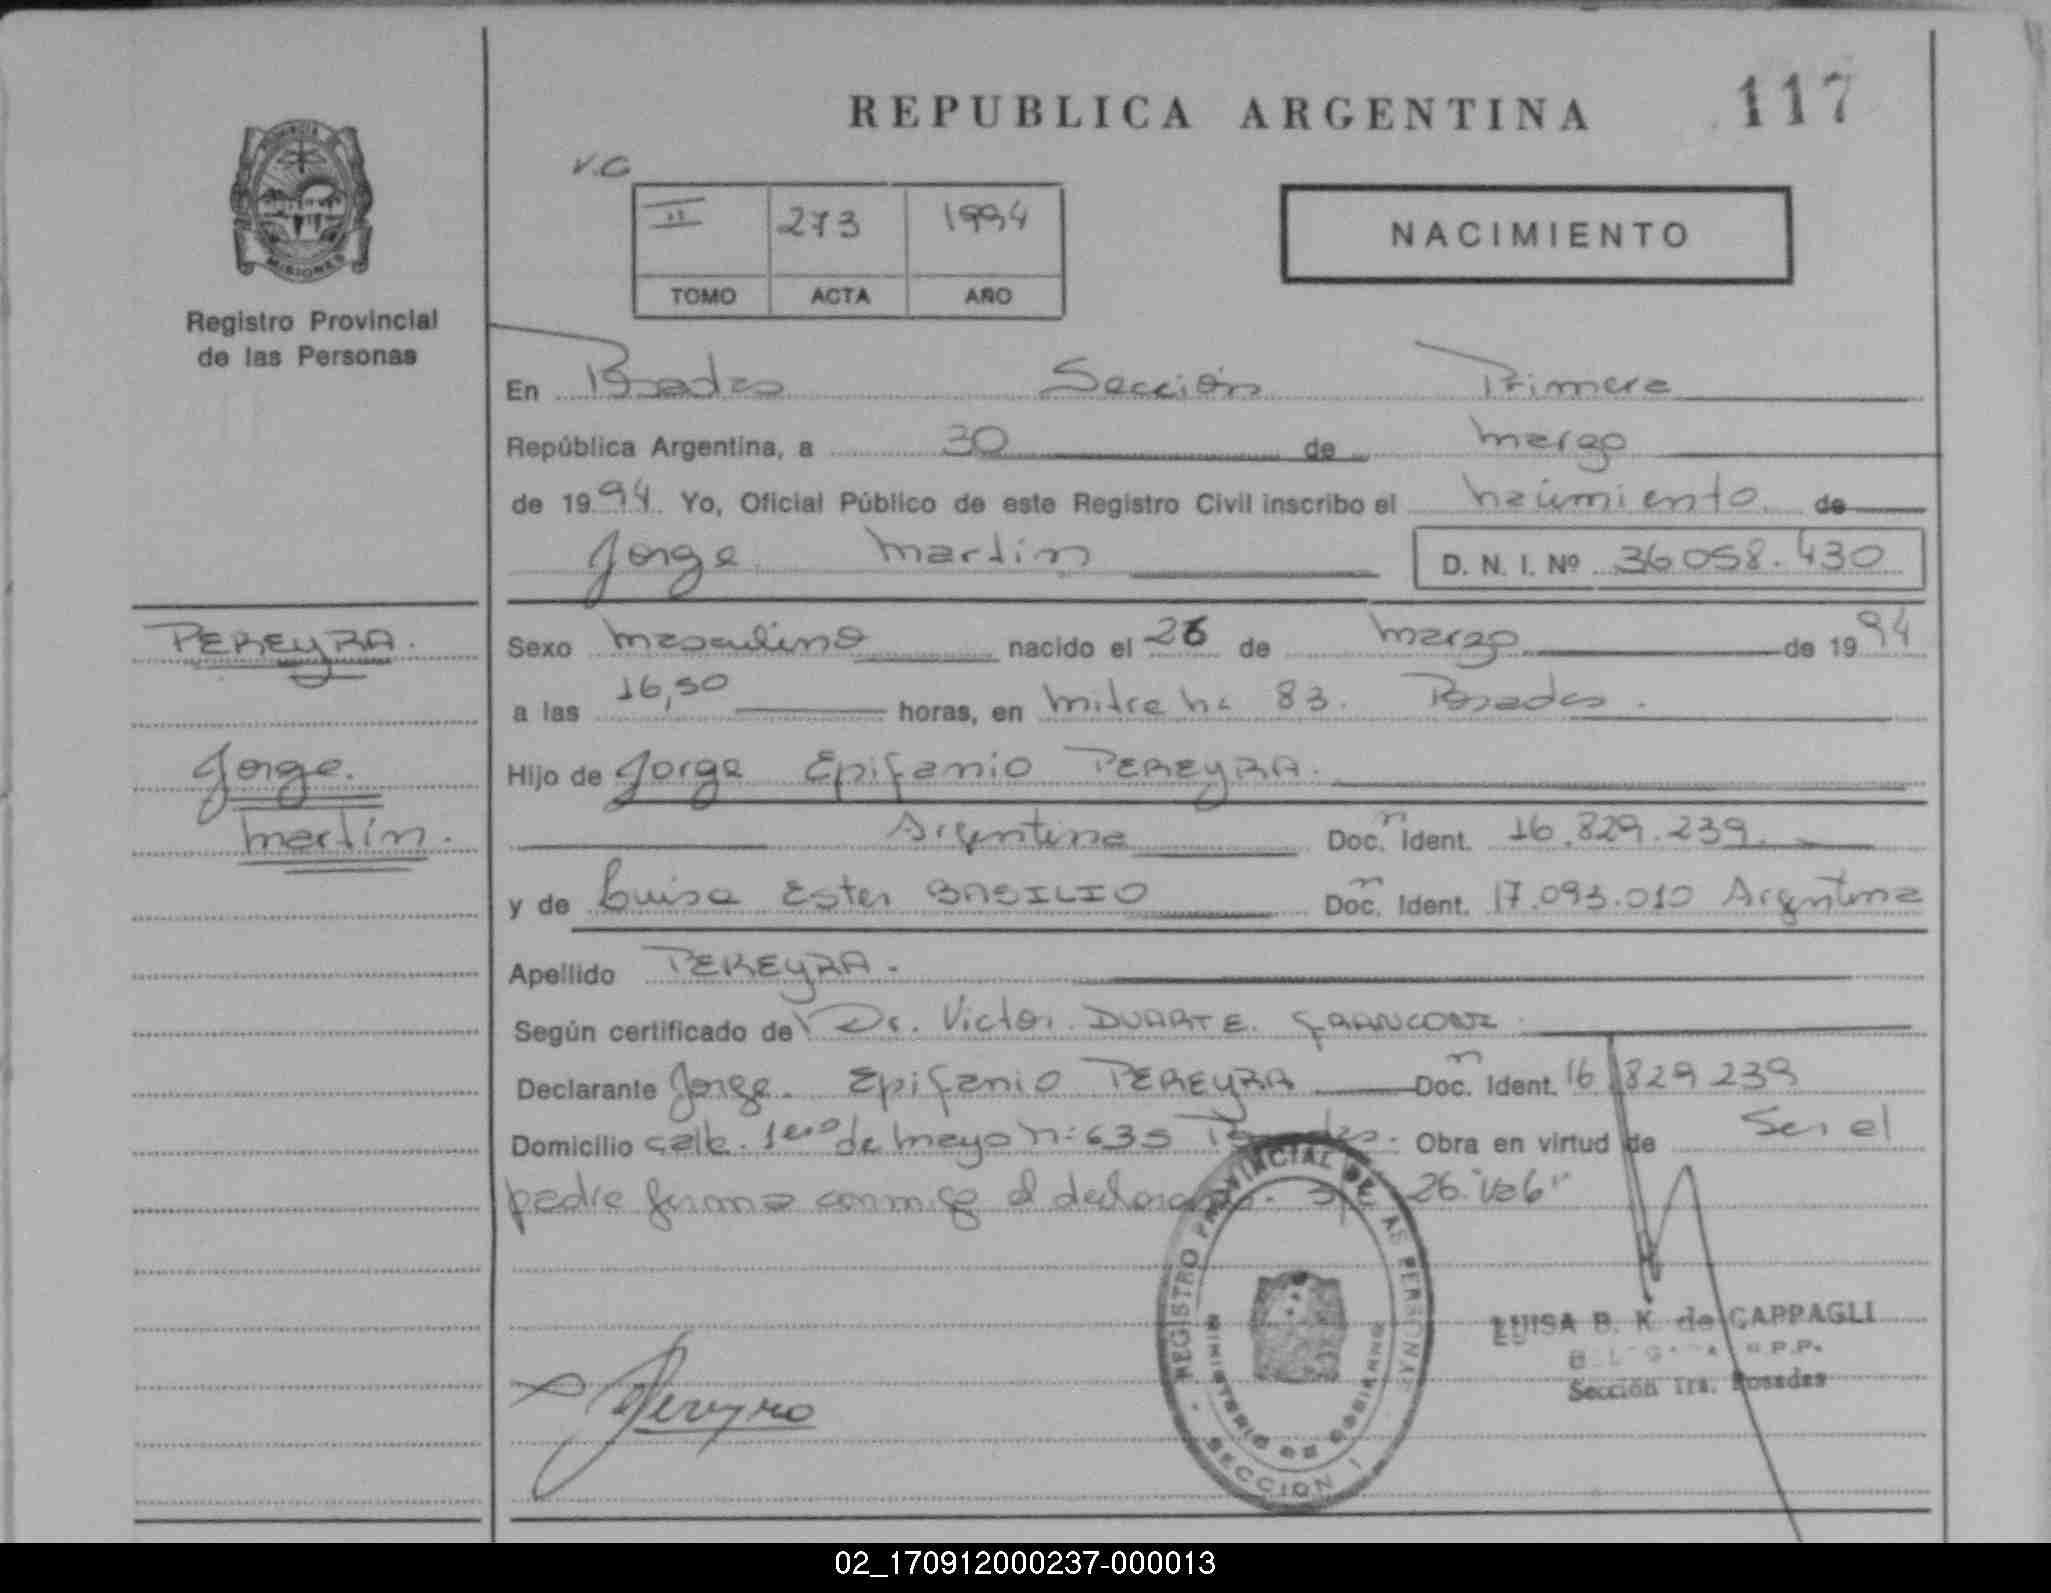 REPUBLICA ARGENTINA
117
V.C
II 273 1994
TOMO ACTA AÑO
NACIMIENTO
PROVINCIA
MISIONES
Registro Provincial
de las Personas
En Posadas Sección Primera
República Argentina, a 30 de marzo
de 1994. Yo, Oficial Público de este Registro Civil inscribo el nacimiento de
Jorge Martín D. N. I. Nº 36058.430
PEREYRA.
Jorge.
Martín.
Sexo masculino nacido el 26 de marzo de 1994
a las 16,50 horas, en Mitre Nº 83. Posadas.
Hijo de Jorge Epifanio PEREYRA.
Argentina Doc. Ident. 16.829.239.
y de Luisa Ester BASILIO Doc. Ident. 17.093.010 Argentina
Apellido PEREYRA.
Según certificado de Dr. Victor DUARTE
Declarante Jorge Epifanio PEREYRA Doc. Ident. 16 829 239
Domicilio calle 1ero de Mayo Nº 635 Posadas. Obra en virtud de Ser el
padre firma conmigo el declarante. 26 "vale"
REGISTRO PROVINCIAL DE LAS PERSONAS
MINISTERIO DE GOBIERNO
SECCION I
LUISA B. K. de CAPPAGLI
Sección 1ra. Posadas
Pereyra
02_170912000237-000013